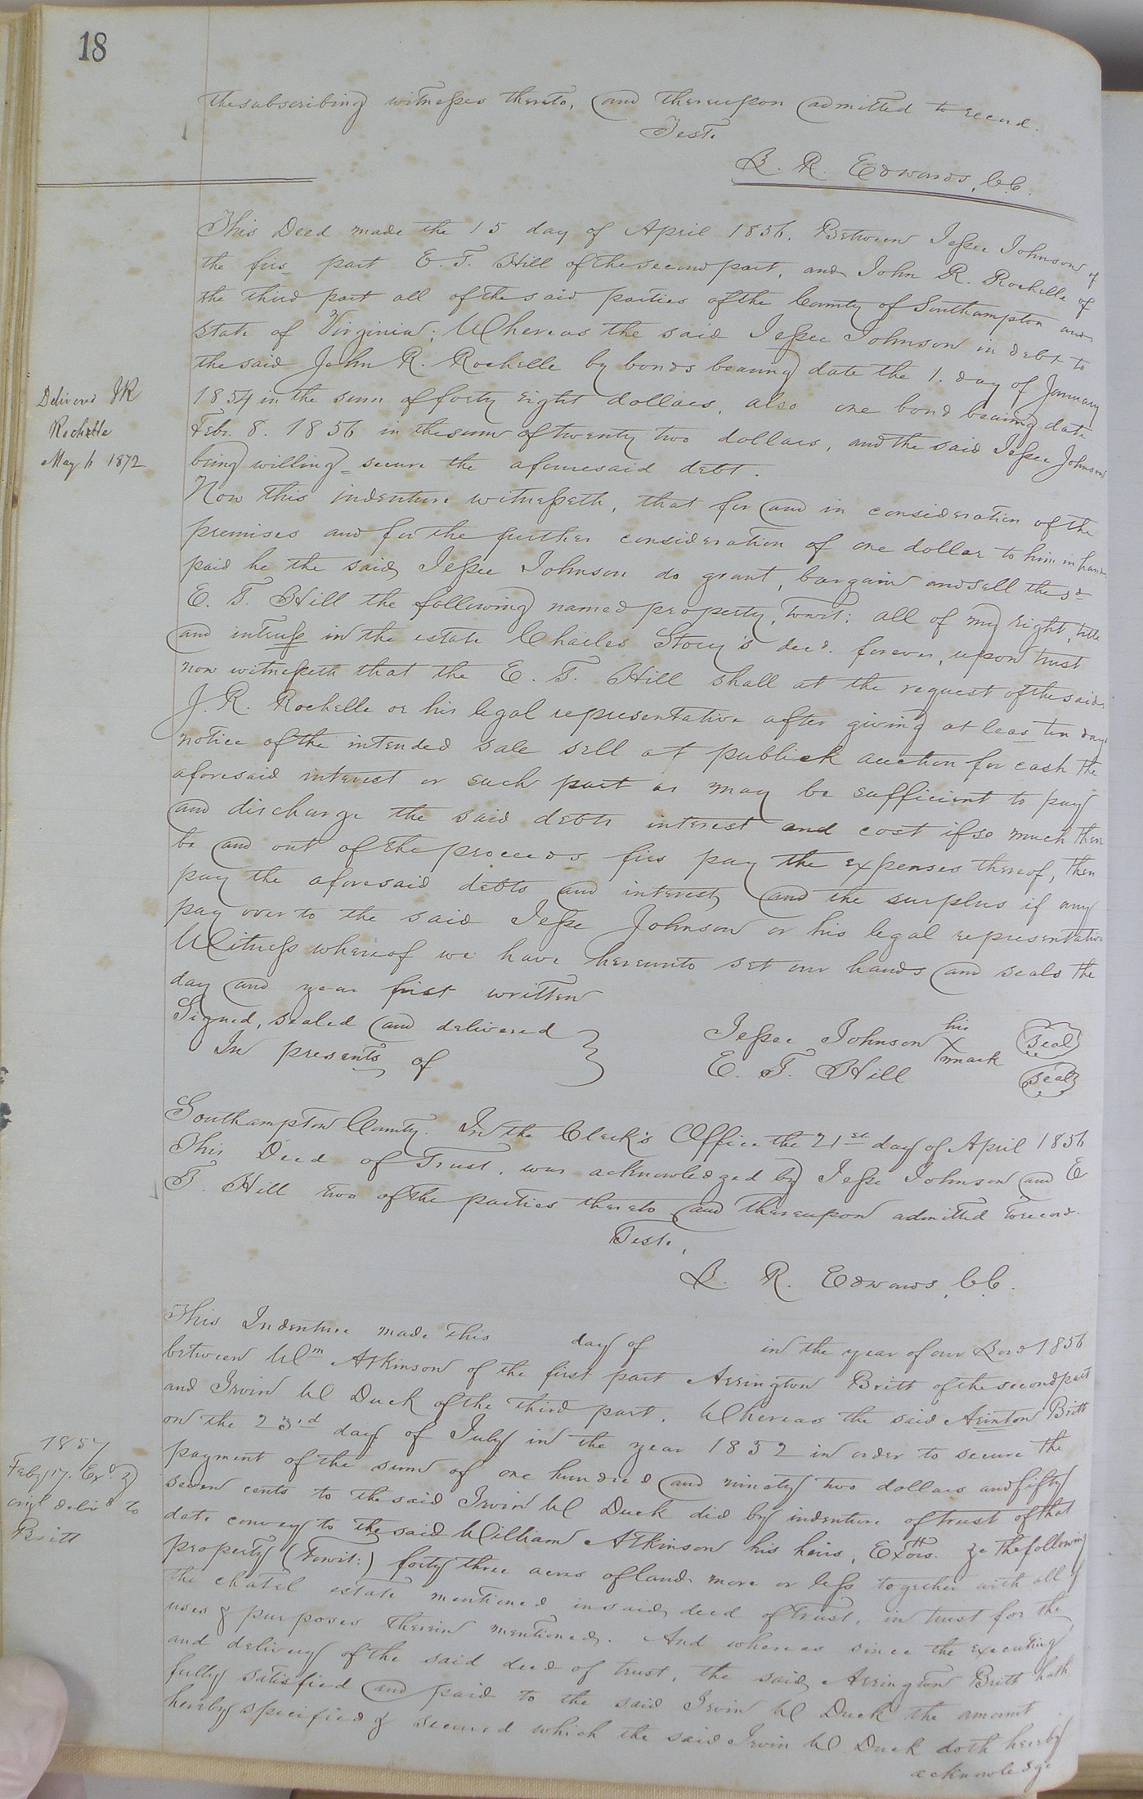 18
the subscribing witnesses thereto, and thereupon admitted to record.
Teste
L. R. Edwards, C.C.
This Deed made the 15 day of April 1856. Between Jesse Johnson of
the firs part E. T. Hill of the second part, and John R. Rochelle of
the third part all of the said parties of the County of Southampton and
State of Virginia; Whereas the said Jesse Johnson in debt to
the said John R. Rochelle by bonds bearing date the 1. day of January
1854 in the sum of forty eight dollars, also one bond bearing date
Feb. 8. 1856 in the sum of twenty two dollars, and the said Jesse Johnson
being willing secure the aforesaid debt.
Delivered JR
Rochelle
May 6 1872
Now this indenture witnesseth, that for and in consideration of the
premises and for the further consideration of one dollar to him in hand
paid he the said Jesse Johnson do grant, bargain and sell the sd
E. T. Hill the following named property, towit: all of my right, title
and intrust in the estate Charles Story's decd. forever, upon trust
now witnesseth that the E. T. Hill shall at the request of the said
J. R. Rochelle or his legal representative after giving at leas ten days
notice of the intended sale sell at publick auction for cash the
aforesaid interest or such part as may be sufficient to pay
and discharge the said debts interest and cost if so much there
be and out of the proceeds firs pay the expenses thereof, then
pay the aforesaid debts and interest and the surplus if any
pay over to the said Jesse Johnson or his legal representative
Witness whereof we have hereunto set our hands and seals the
day and year first written
Signed, sealed and delivered
In presents of
Jesse Johnson his X mark Seal
E. T. Hill Seal
Southampton County. In the Clerk's Office the 21st day of April 1856
This Deed of Trust, was acknowledged by Jesse Johnson and E
T. Hill two of the parties thereto and thereupon admitted to record.
Teste,
L. R. Edwards, C.C.
This Indenture made this day of in the year of our Lord 1856
between Wm Atkinson of the first part Arrington Britt of the second part
and Irvin W Duck of the third part. Whereas the said Arinton Britt
on the 23rd day of July in the year 1852 in order to secure the
payment of the sum of one hundred and ninety two dollars and fifty
seven cents to the said Irvin W Duck did by indenture of trust of that
date convey to the said William Atkinson his heirs, Exors. &c the following
property (towit:) forty three acres of land more or less together with all of
the chatel estate mentioned in said deed of trust, in trust for the
uses & purposes therein mentioned. And whereas since the executing
and delivery of the said deed of trust, the said Arrington Britt hath
fully satisfied and paid to the said Irvin W Duck the amount
hereby specified & secured which the said Irvin W Duck doth hereby
acknowledge
1857
Feby 17. Exd &
origl delivd to
Britt